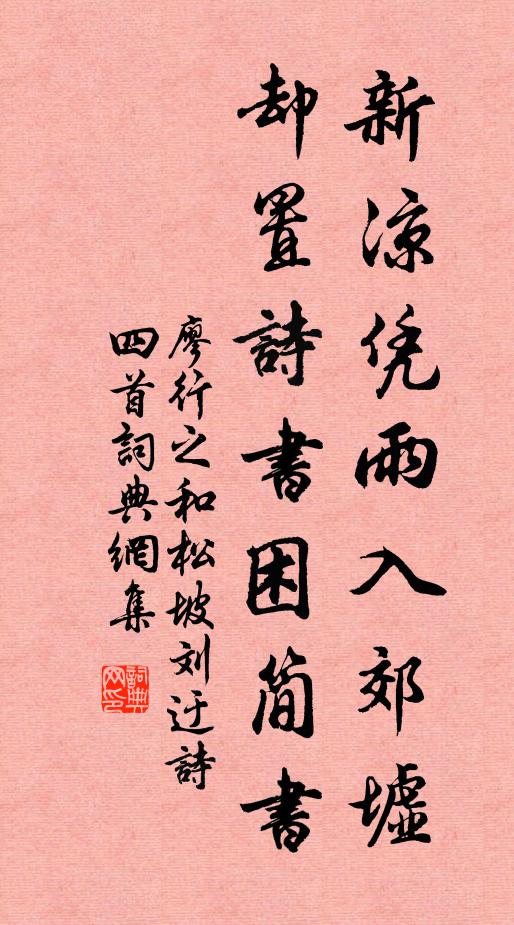 新凉凭雨入郊墟
却置詩書困简書
廖行之和松坡刘迂詩
四首詞典網集
詞典网印